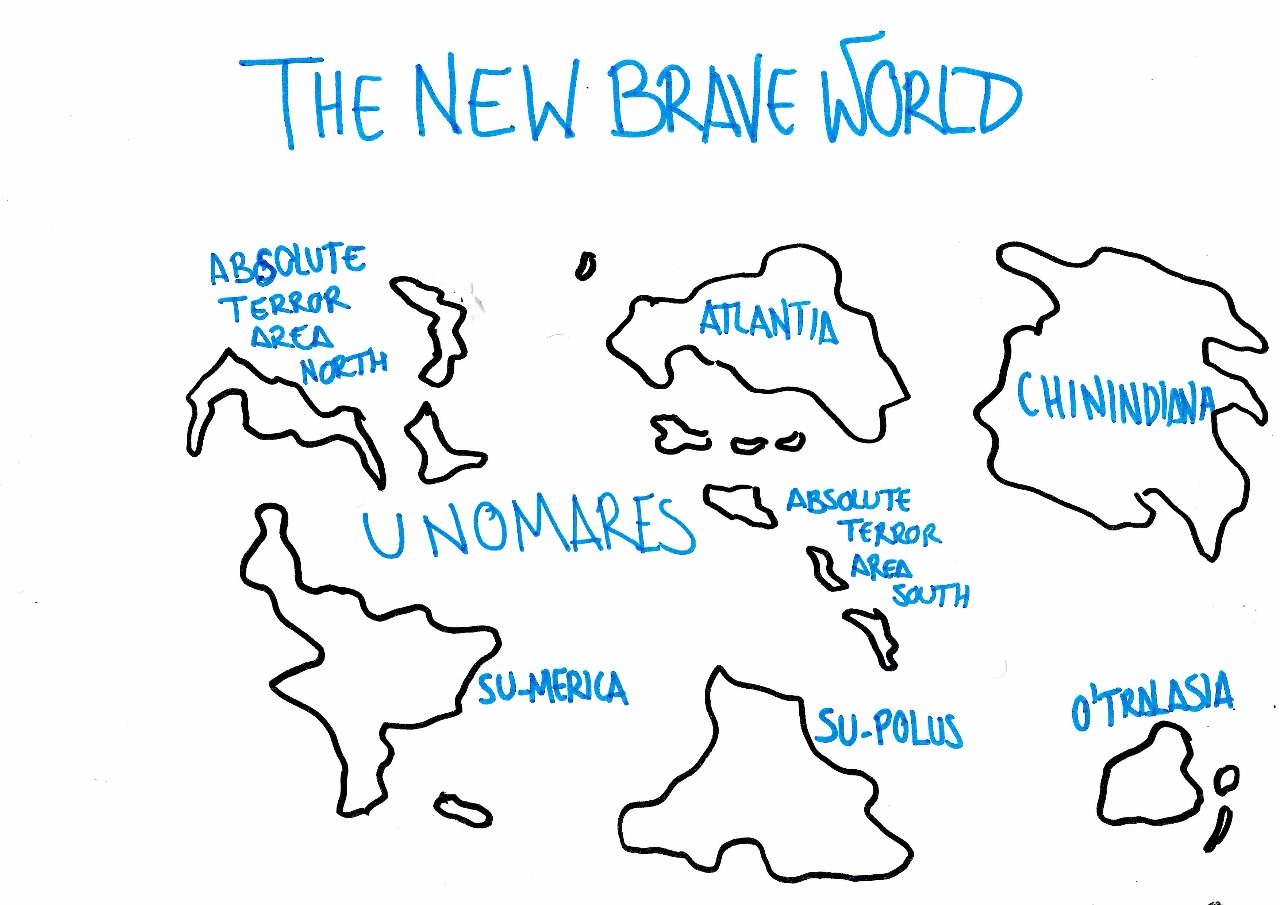 THE NEW BRAVE WORLD
ABSOLUTE
TERROR
AREA
NORTH
ATLANTIA
CHININDIANA
UNOMARES
ABSOLUTE
TERROR
AREA
SOUTH
SU-MERICA
SU-POLUS
O'TRALASIA